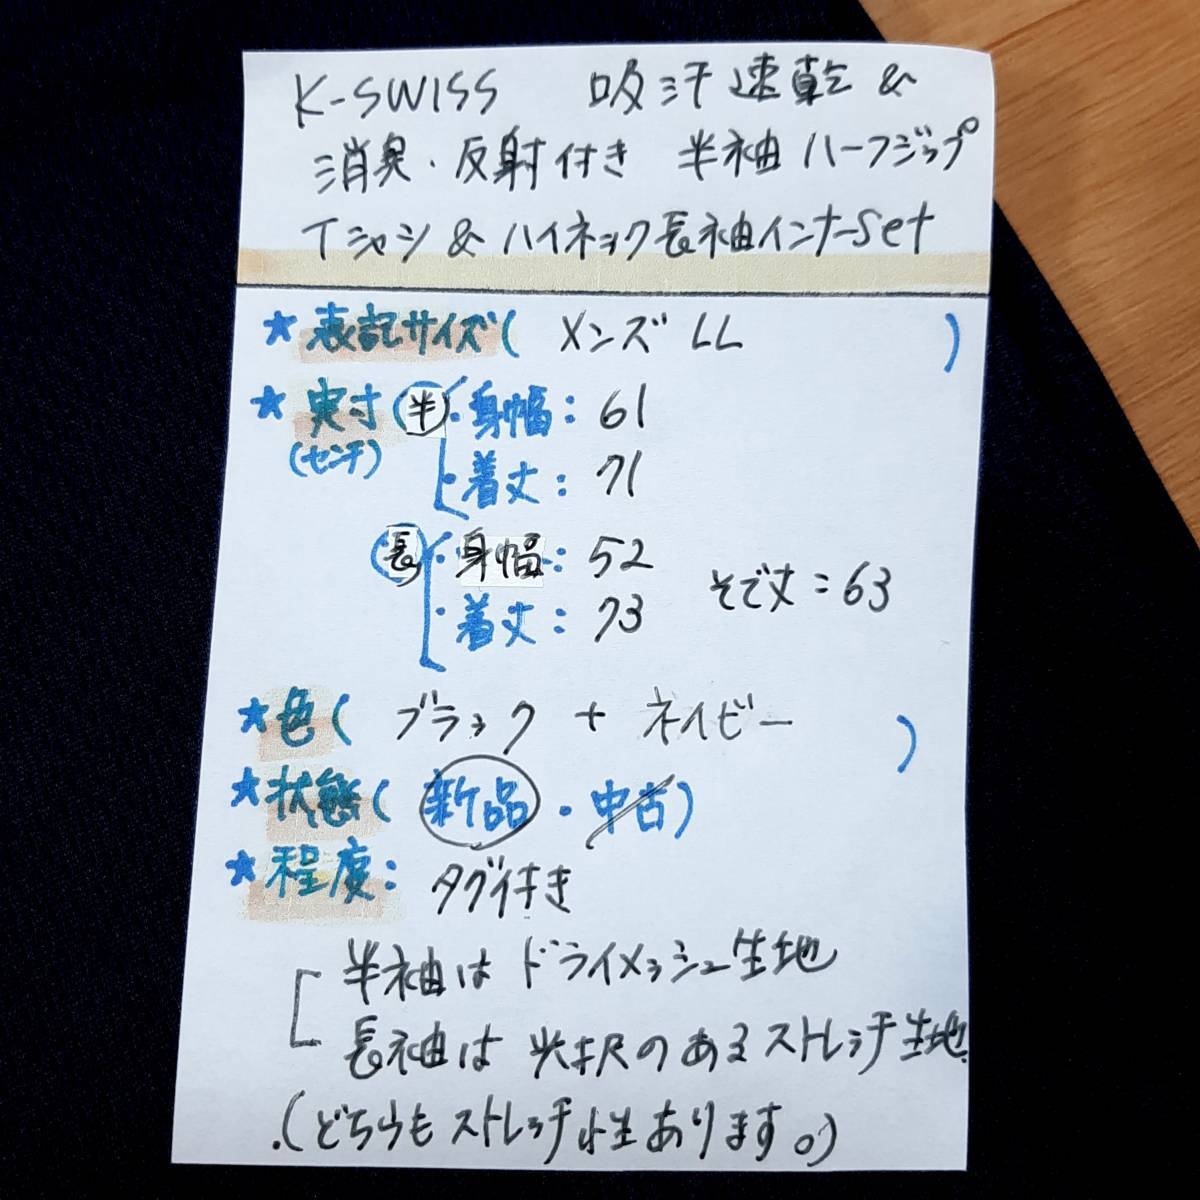 K-SWISS 吸汗速乾&
消臭・反射付き 半袖ハーフジップ
Tシャツ&ハイネック長袖インナーSet
★表記サイズ( メンズLL )
★実寸(半)・身幅:61
(センチ)・着丈:71
(長)・身幅:52 そで丈:63
・着丈:73
★色( ブラック + ネイビー )
★状態( 新品・中古)
★程度: タグ付き
半袖は ドライメッシュ生地
長袖は 光沢のあるストレッチ生地.
.(どちらもストレッチ性あります。)